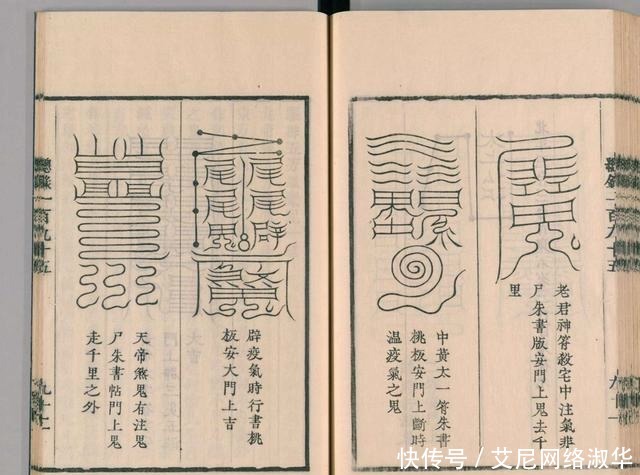 老君神符殺宅中注氣非
尸朱書版安門上鬼去千
里
中黄太一符朱書
桃板安門上斷時
温疫氣之鬼
辟疫氣時行書桃
板安大門上吉
天帝煞鬼有注鬼
尸朱書帖門上鬼
走千里之外
一百九十五
快传号 / 艾尼网络淑华